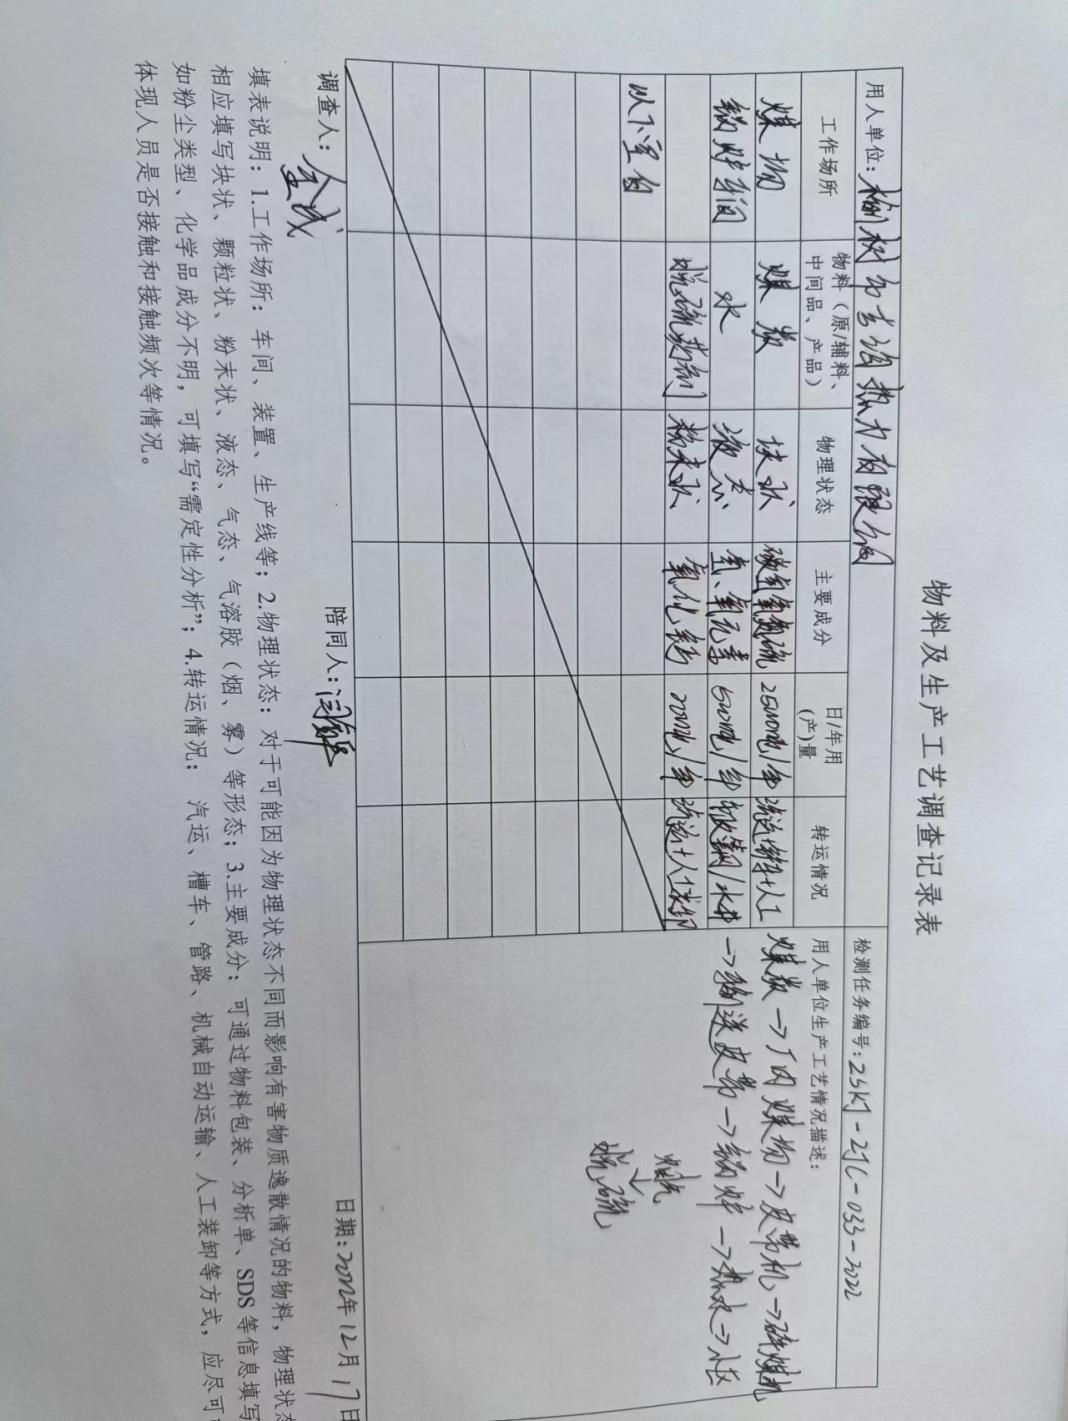 物料及生产工艺调查记录表
用人单位：榆树市吉润热力有限公司 检测任务编号：25KJ-ZJC-033-2022
工作场所 物料（原/辅料、中间品、产品） 物理状态 主要成分 日/年用(产)量 转运情况 用人单位生产工艺情况描述：
煤场 煤炭 块状 碳氢氧氮硫 25000吨/年 汽运 人工
锅炉车间 水 液态 氢、氧元素 500吨/年 /水井
脱硫药剂 粉末状 氧化钙 20吨/年 汽运+人工装卸
以下空白
煤炭→厂内煤场→皮带机→碎煤机
→输送皮带→锅炉→热水→小区
↓
脱硫
调查人： 陪同人： 日期：2022年12月17日
填表说明：1.工作场所：车间、装置、生产线等；2.物理状态：对于可能因为物理状态不同而影响有害物质逸散情况的物料，物理状态
相应填写块状、颗粒状、粉末状、液态、气态、气溶胶（烟、雾）等形态；3.主要成分：可通过物料包装、分析单、SDS等信息填写
如粉尘类型、化学品成分不明，可填写“需定性分析”；4.转运情况：汽运、槽车、管路、机械自动运输、人工装卸等方式，应尽可
体现人员是否接触和接触频次等情况。